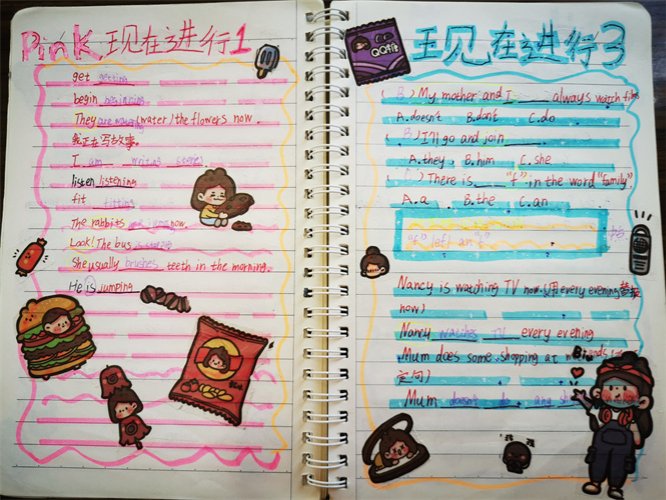 Pink 现在进行1
get getting
begin beginning
They are watering (water) the flowers now.
我正在写故事。
I am writing stories
listen listening
fit fitting
The rabbits are jumping now.
Look! The bus is
She usually brushes teeth in the morning.
He is jumping
现在进行3
QQfit
(B) My mother and I ___ always watch film
A.doesn't B.don't C.do
(B) I'll go and join ___.
A.they, B.him C.she
( ) There is ___ "f" in the word "family".
A.a B.the C.an
"f" left an "f"
Nancy is watching TV now.(用every evening替换
now)
Nancy watches TV every evening
Mum does some shopping at
定句)
Mum doesn't do any